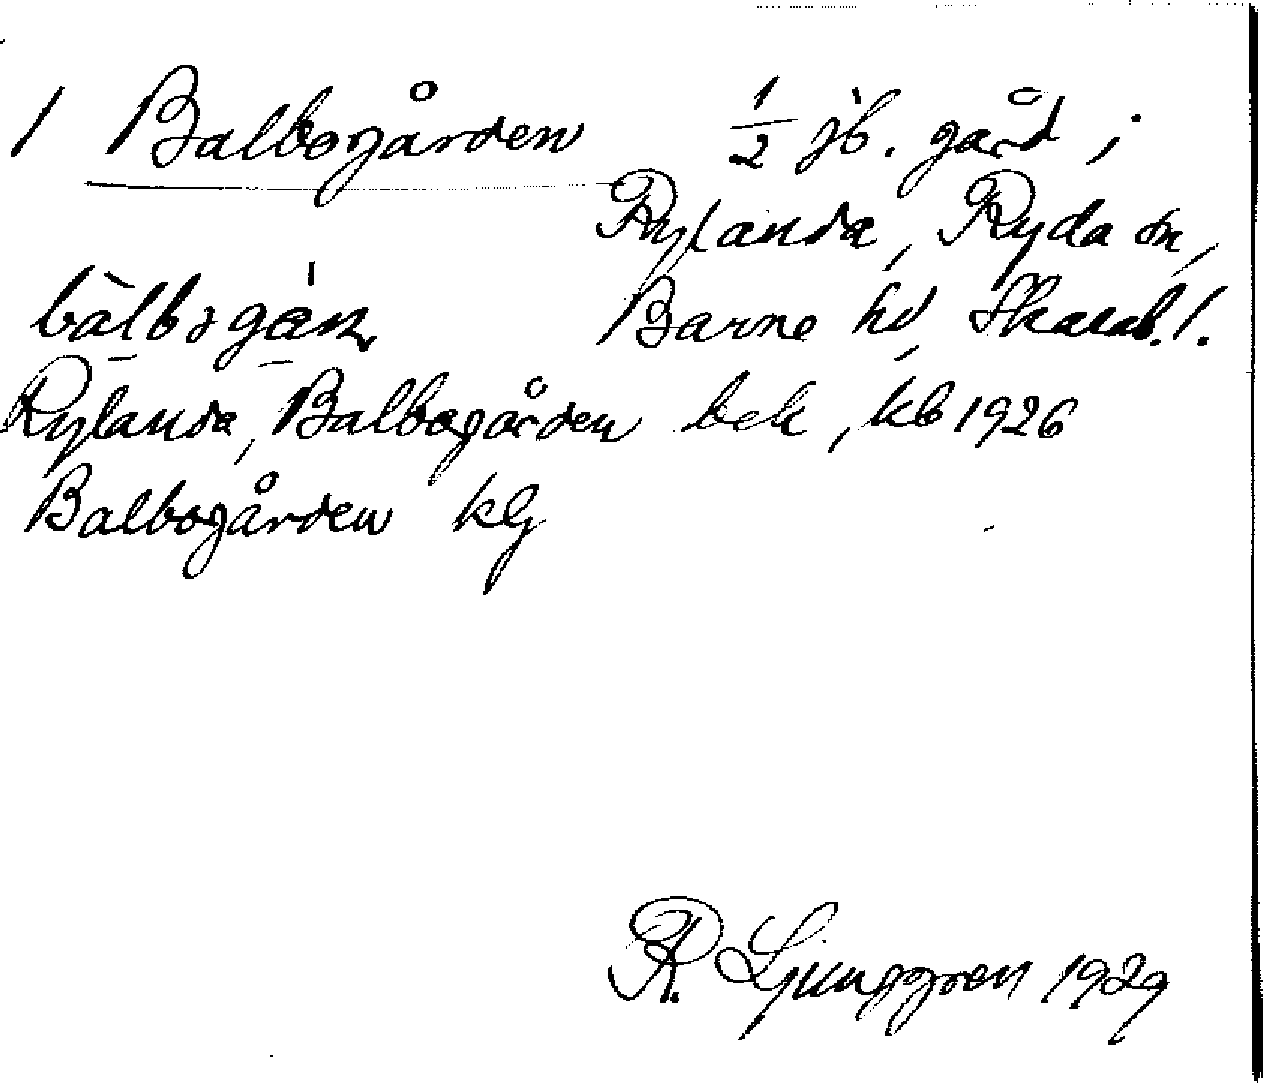 1 Balbogården 1/2 jb. gård i
Rylanda, Ryda sn,
Barne hd, Skarab. l.
bàlbogán
Rylanda, Balbogården bek, kb 1926
Balbogården kG
R. Ljunggren 1929